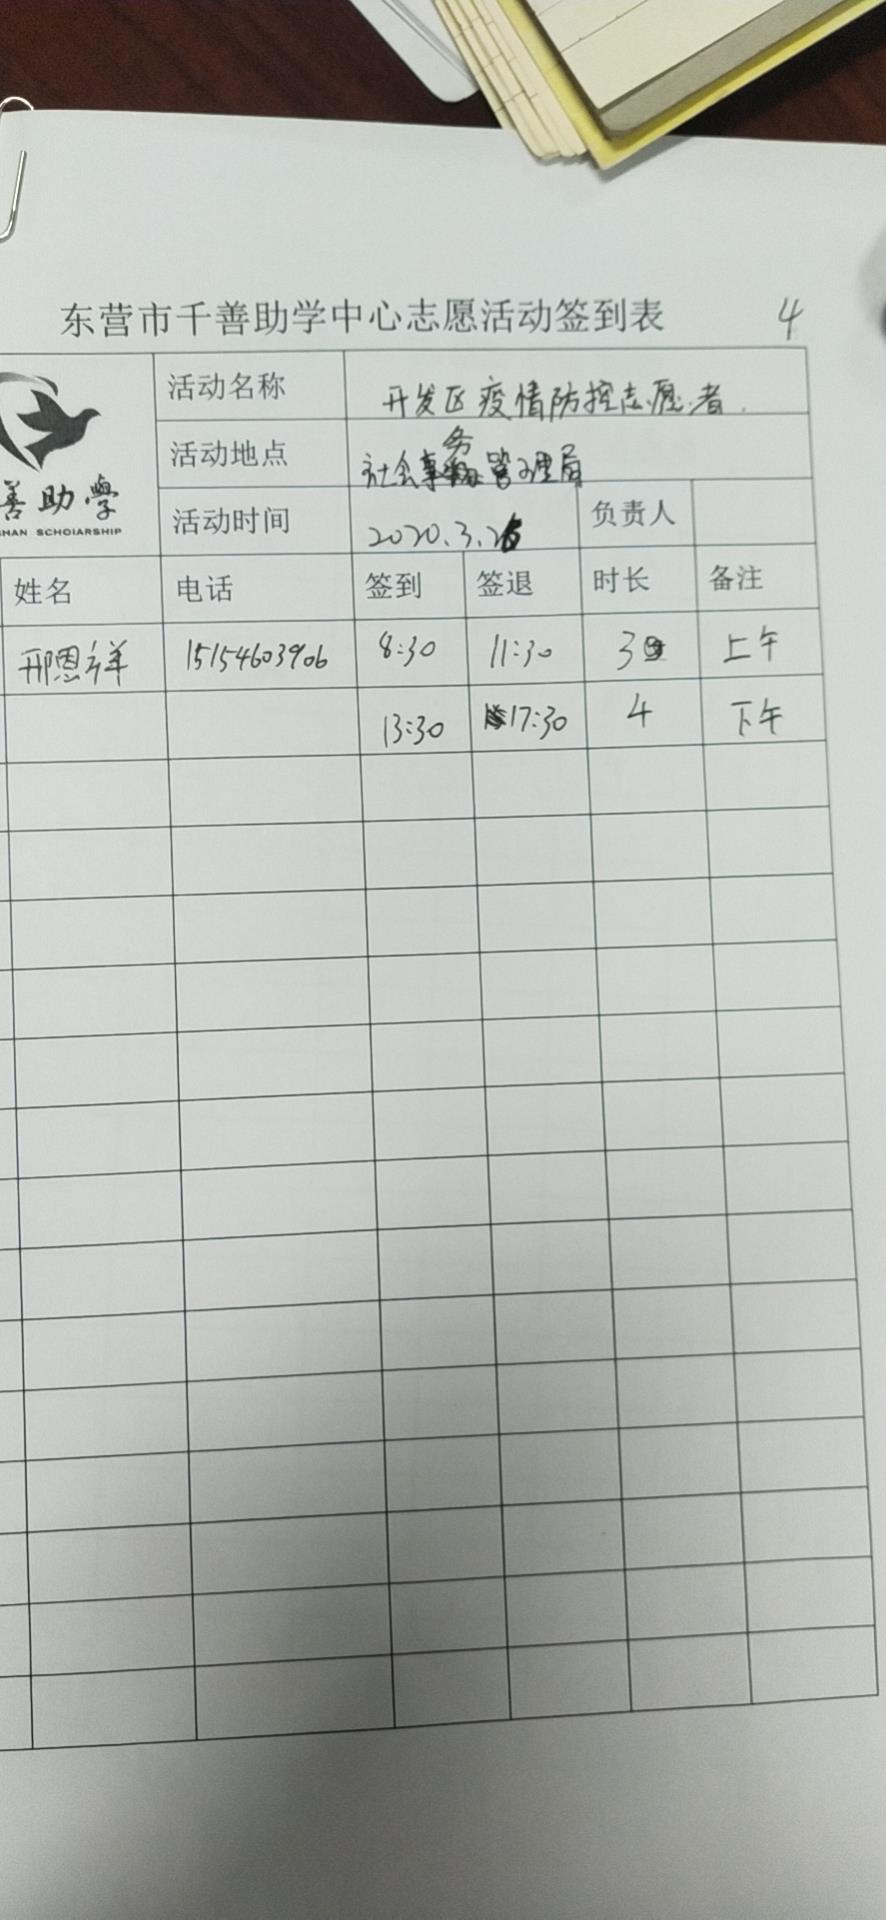 东营市千善助学中心志愿活动签到表 4
善助學
HAN SCHOIARSHIP
活动名称 开发区疫情防控志愿者.
活动地点 社会事务管理局
活动时间 2020.3. 负责人
姓名 电话 签到 签退 时长 备注
邢恩祥 15154603906 8:30 11:30 3 上午
13:30 17:30 4 下午